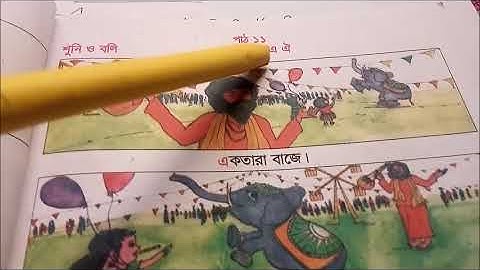 পাঠ ১১
শুনি ও বলি
এ ঐ
একতারা বাজে।